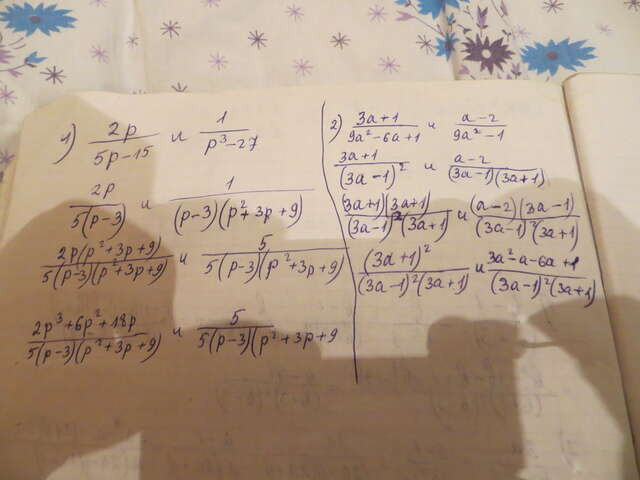 1) 2p/(5p-15) и 1/(p³-27)
2p/(5(p-3)) и 1/((p-3)(p²+3p+9))
2p(p²+3p+9)/(5(p-3)(p²+3p+9)) и 5/(5(p-3)(p²+3p+9))
2p³+6p²+18p/(5(p-3)(p²+3p+9)) и 5/(5(p-3)(p²+3p+9
2) 3a+1/(9a²-6a+1) и a-2/(9a²-1)
3a+1/(3a-1)² и a-2/((3a-1)(3a+1))
(3a+1)(3a+1)/((3a-1)²(3a+1)) и (a-2)(3a-1)/((3a-1)²(3a+1))
(3a+1)²/((3a-1)²(3a+1)) и 3a²-a-6a+1/((3a-1)²(3a+1))